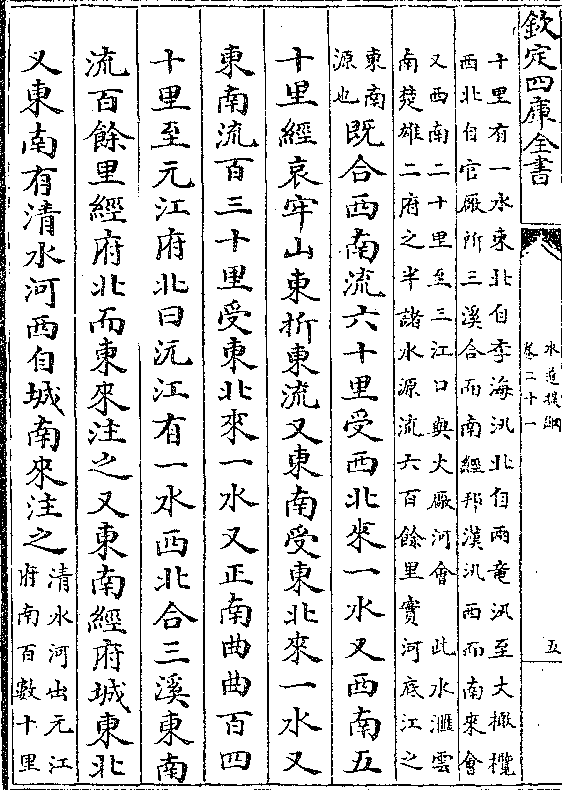 欽定四庫全書
水道提綱
卷二十一
五
十里有一水東北自季海汛北自雨竜汛至大橄欖
西北自官廠所三溪合而南經邦漢汛西而南來會
又西南二十里至三江口與大廠河會 此水滙雲
南楚雄二府之半諸水源流六百餘里實河底江之
東南
源也
既合西南流六十里受西北來一水又西南五
十里經哀牢山東折東流又東南受東北來一水又
東南流百三十里受東北來一水又正南曲曲百四
十里至元江府北曰沅江有一水西北合三溪東南
流百餘里經府北而東來注之又東南經府城東北
又東南有清水河西自城南來注之
清水河出元江
府南百數十里